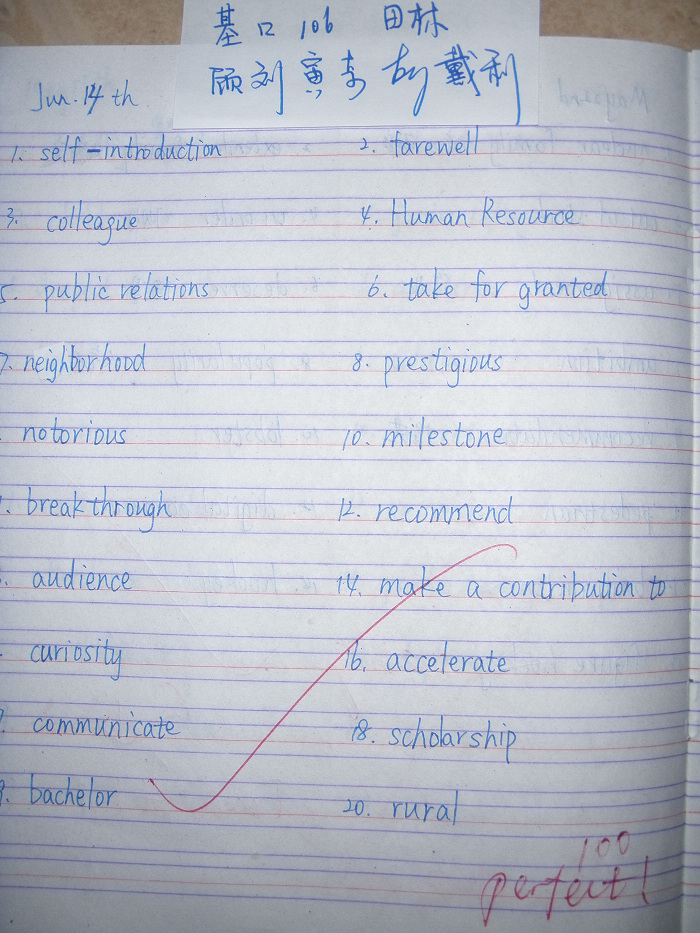 基口 106 田林
顾刘寅李 戴利
Jun. 14th
1. self-introduction 2. farewell
3. colleague 4. Human Resource
5. public relations 6. take for granted
7. neighborhood 8. prestigious
notorious 10. milestone
breakthrough 12. recommend
audience 14. make a contribution to
curiosity 16. accelerate
communicate 18. scholarship
9. bachelor 20. rural
100
perfect!